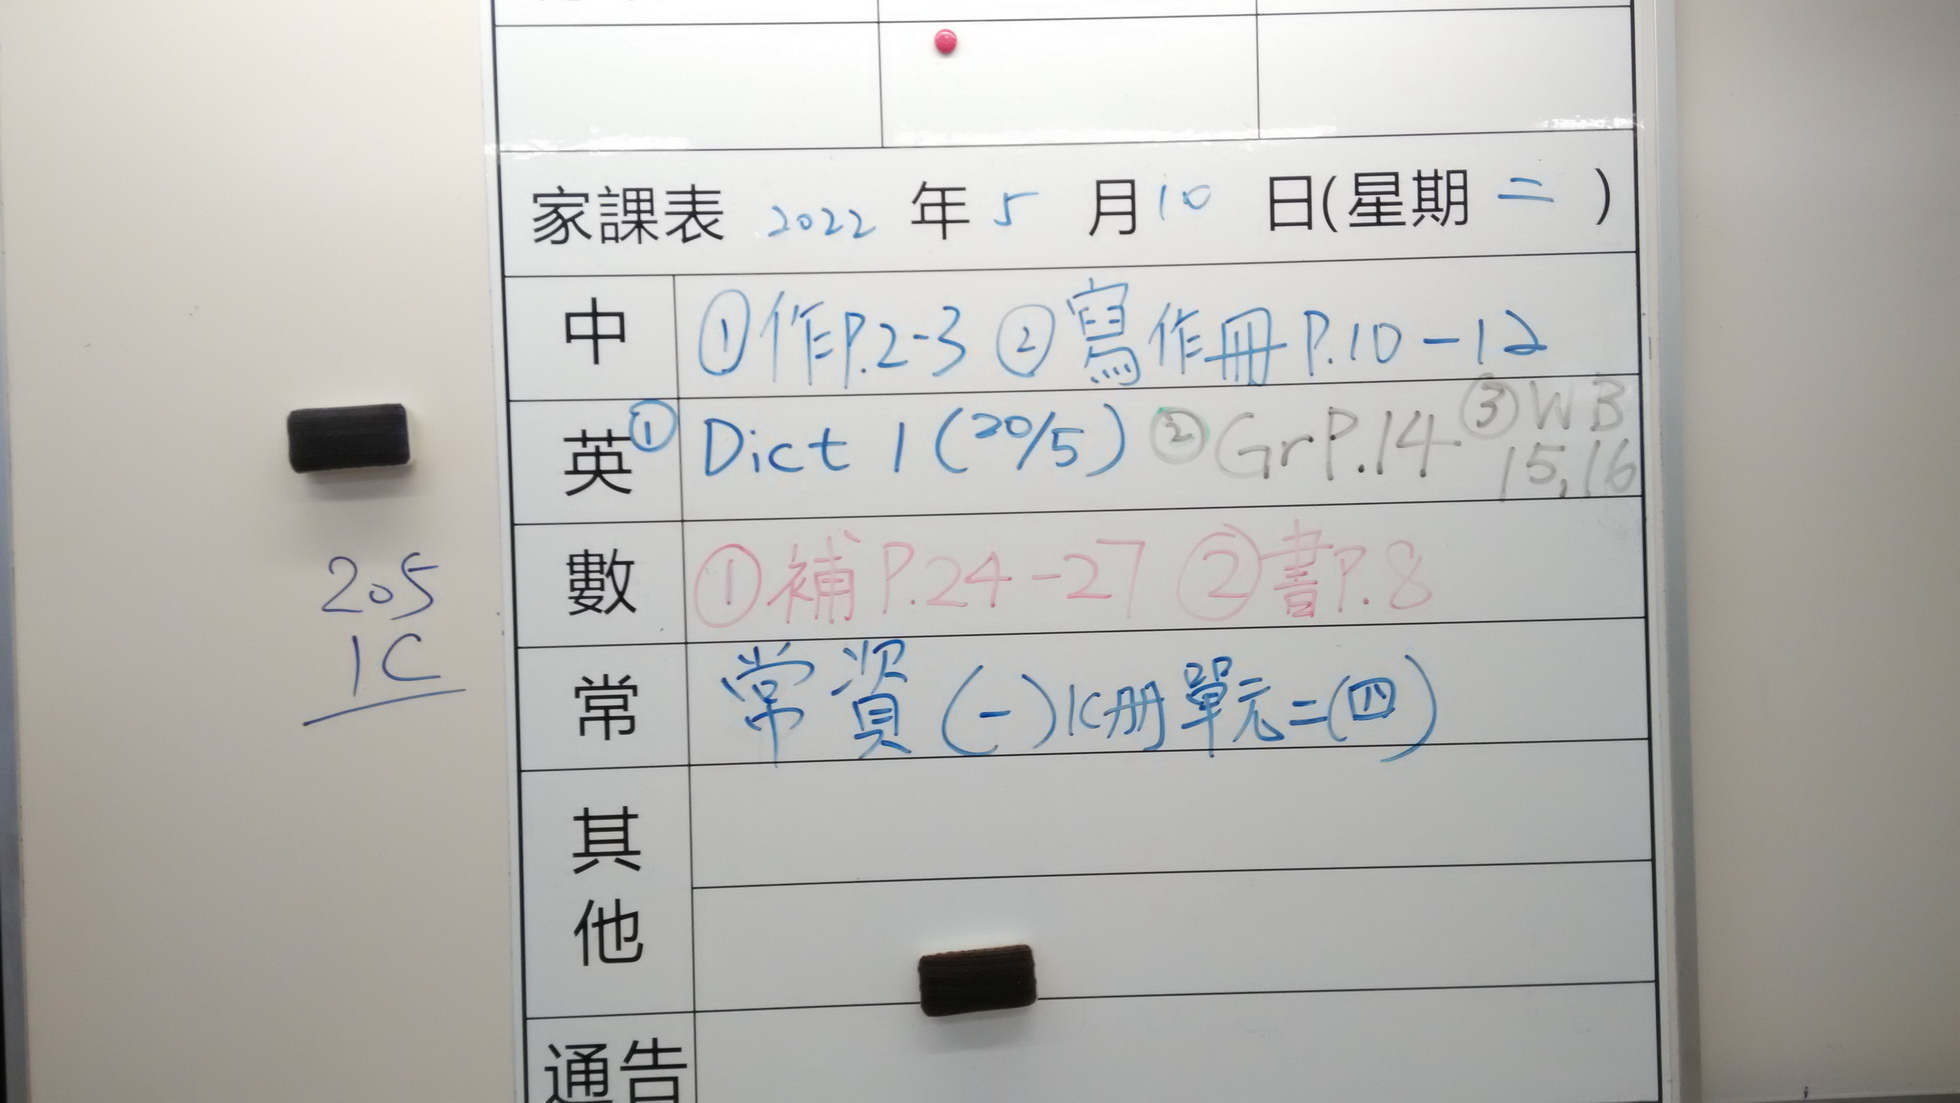 家課表 2022 年 5 月 10 日(星期 二 )
中 ①作P.2-3 ②寫作冊 P.10-12
英 ① Dict 1 (20/5) ② GrP.14 ③ WB 15,16
數 ①補 P.24-27 ②書P.8
常 常資(一)K册單元二(四)
其他
通告
205
1C